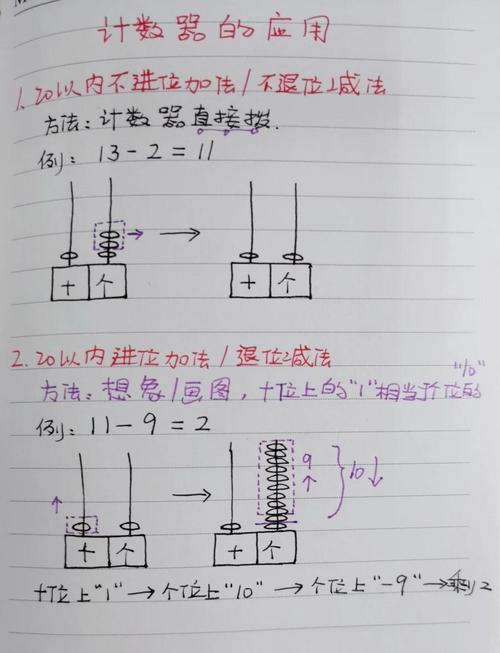 计数器的应用
1. 20以内不进位加法/不退位减法
方法：计数器直接拨.
例：13-2=11
十 个 → 十 个
2. 20以内进位加法/退位减法
方法：想象/画图，十位上的"1"相当于个位的"10"
例：11-9=2
↑ 十 个 → 十 个 9↑ 10↓
十位上"1"→个位上"10"→个位上"-9"→剩2